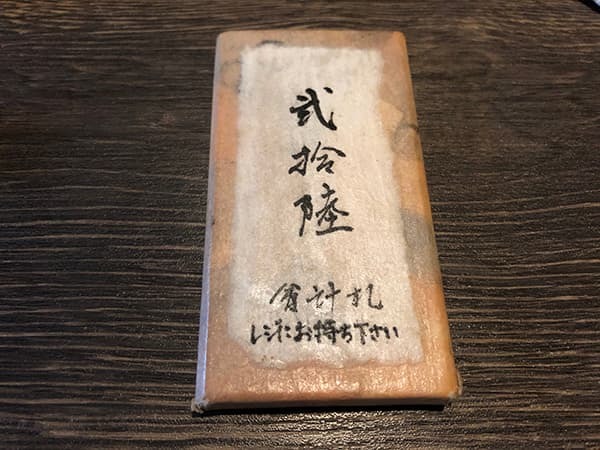 弐拾陸
会計札
レジにお持ち下さい